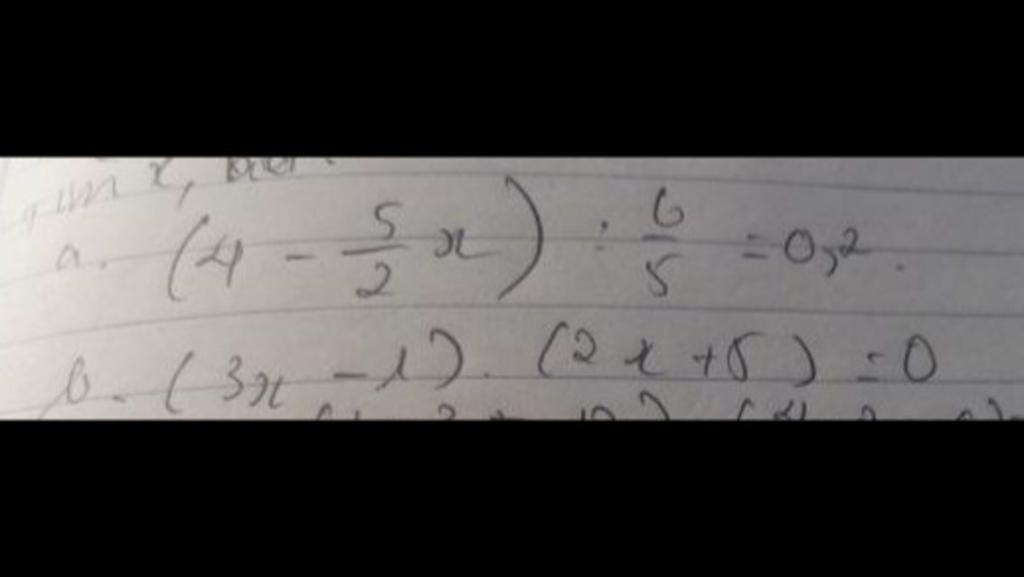 a. (4 - 5/2 x) : 6/5 = 0,2.
b. (3x - 1). (2x + 5) = 0